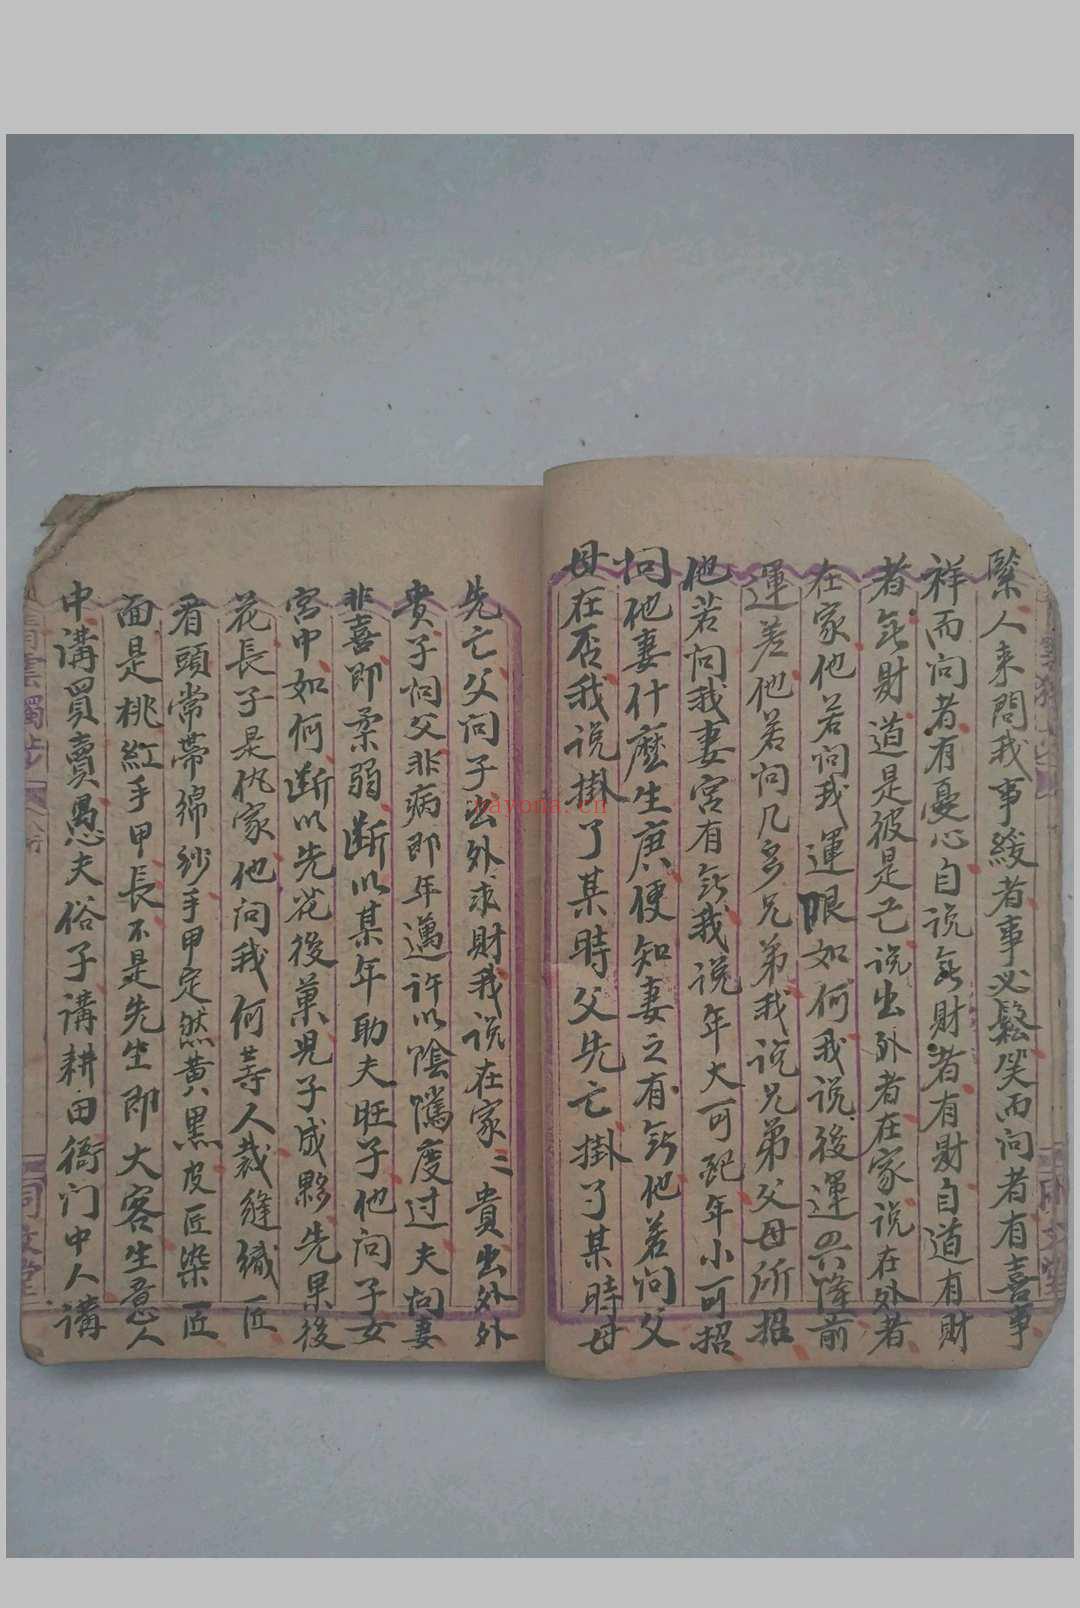 緊人来問我事緩者事必鬆笑而问者有喜事
祥而问者有憂心自说無財者有財自道有財
者無財道是彼是亡说出外者在家说在外者
在家他若问我運限如何我说後運兴隆前
運差他若问几多兄弟我说兄弟父母所招
他若问我妻宮有無我说年大可配年小可招
问他妻什麽生庚便知妻之有無他若问父
母在否我说掛了某時父先亡掛了某時母
先亡父问子出外求財我说在家三貴出外外
贵子问父非病即年邁许以陰騭度过夫问妻
非喜即柔弱断以某年助夫旺子他问子女
宮中如何断以先花後菓児子成夥先菓後
花長子是仇家他问我何等人裁縫織匠
看頭常带綿紗手甲定然黄黑皮匠染匠
面是桃紅手甲長不是先生即大客生意人
中講買賣愚夫俗子講耕田衙门中人講
青雲獨步
同文堂
nayona.cn